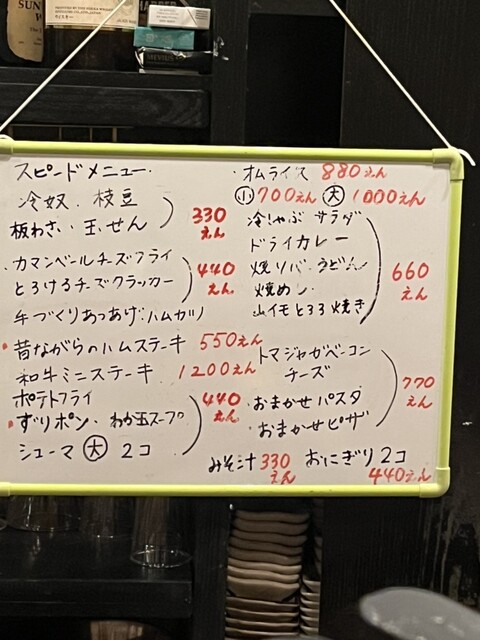 スピードメニュー.
冷奴. 枝豆
板わさ. 玉.せん
330
えん
・カマンベールチーズフライ
とろけるチーズクラッカー
440
えん
手づくりあつあげ:ハムカツ
・昔ながらのハムステーキ 550えん
和牛ミニステーキ 1200えん
ポテトフライ
・ずりポン. わか玉スープ
シューマ 大 2コ
440
えん
・オムライス 880えん
小 700えん 大 1000えん
冷しゃぶ サラダ
ドライカレー
焼ソバ. うどん
焼めし.
山イモとろろ焼き
660
えん
トマジャガベーコン
チーズ
・おまかせ パスタ
・おまかせ ピザ
770
えん
みそ汁 330
えん
おにぎり 2コ
440えん